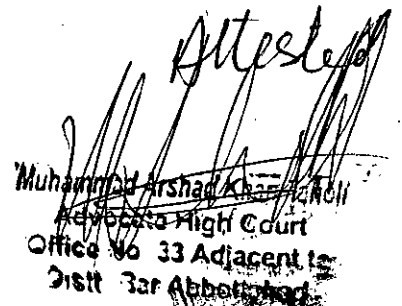 Attested
Muhammad Arshad Khan
Advocate High Court
Office No 33 Adjacent to
Distt Bar Abbottabad